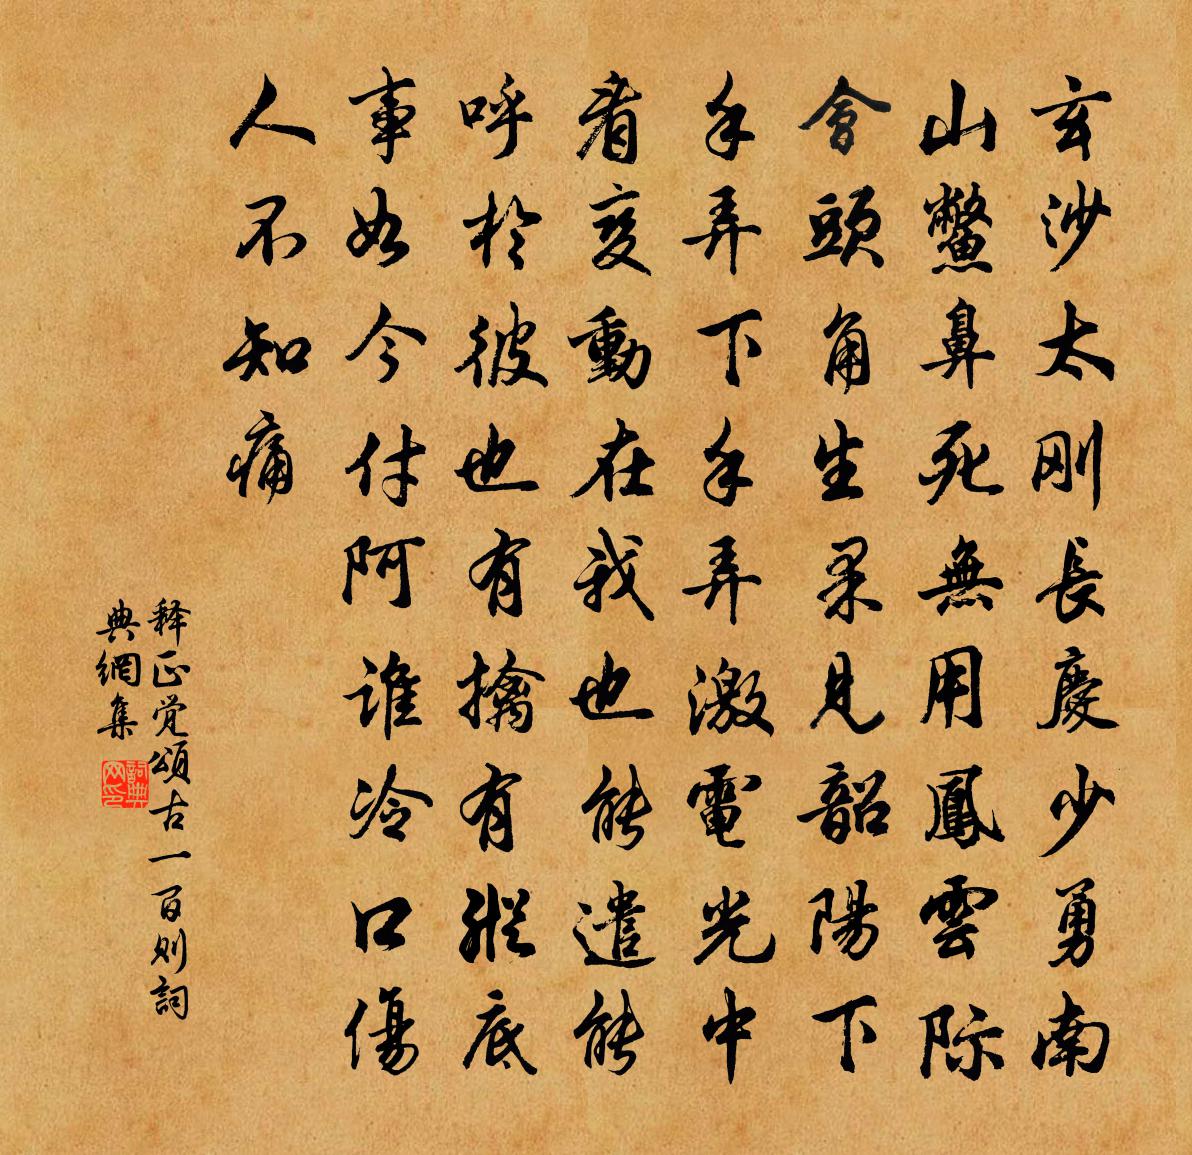 玄沙太刚長慶少勇南
山鱉鼻死無用鳳雲际
會頭角生果見韶陽下
手弄下手弄激電光中
看变動在我也能遣能
呼於彼也有擒有縱底
事如今付阿誰冷口傷
人不知痛
释正覚頌古一百则詞
典網集
詞典网印